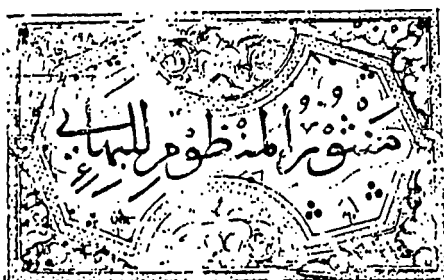 منثور المنظوم للبهائي